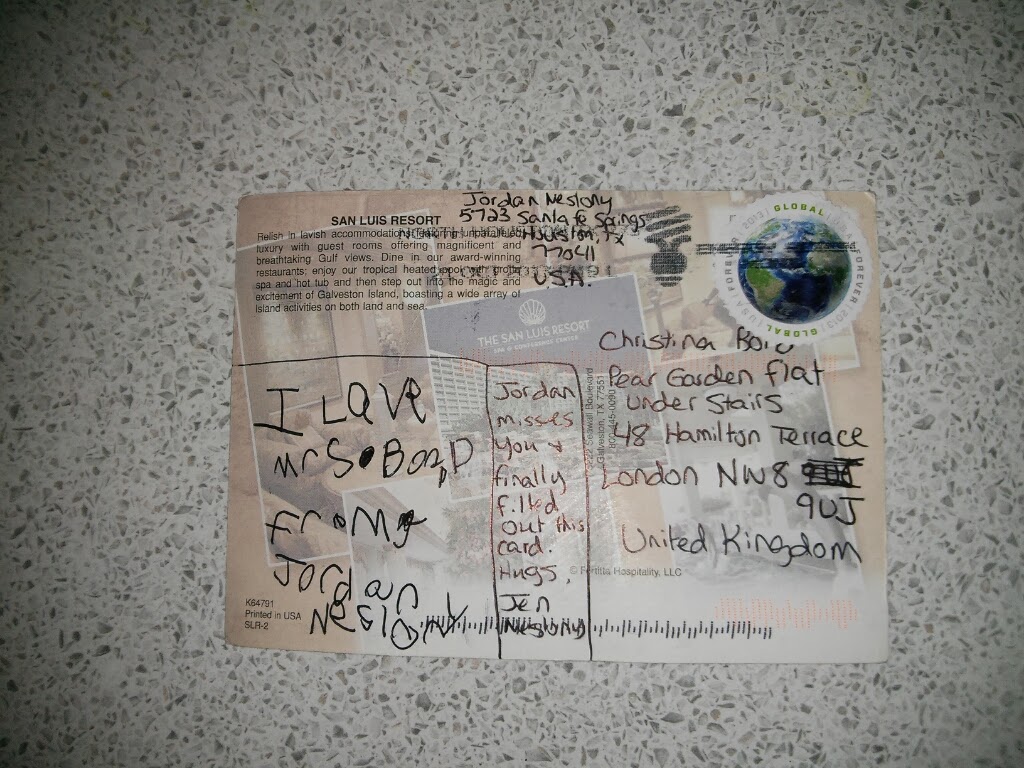 Jordan Neslony
5723 Santa Fe Springs
Houston, TX
77041
USA.
SAN LUIS RESORT
Relish in lavish accommodations featuring unparalleled
luxury with guest rooms offering magnificent and
breathtaking Gulf views. Dine in our award-winning
restaurants; enjoy our tropical heated pool with grotto
spa and hot tub and then step out into the magic and
excitement of Galveston Island, boasting a wide array of
island activities on both land and sea.
GLOBAL
FOREVER
2013
GLOBAL
USA FOREVER 2013
THE SAN LUIS RESORT
SPA & CONFERENCE CENTER
I Love
MrS. Bon,D
From
Jordan
NESLONY
Jordan
misses
you &
finally
filled
out this
card.
Hugs,
Jen
Neslony
Seawall Boulevard
Galveston, TX 77551
Christina
Pear Garden Flat
Under Stairs
48 Hamilton Terrace
London NW8
9UJ
United Kingdom
© Fertitta Hospitality, LLC
K64791
Printed in USA
SLR-2